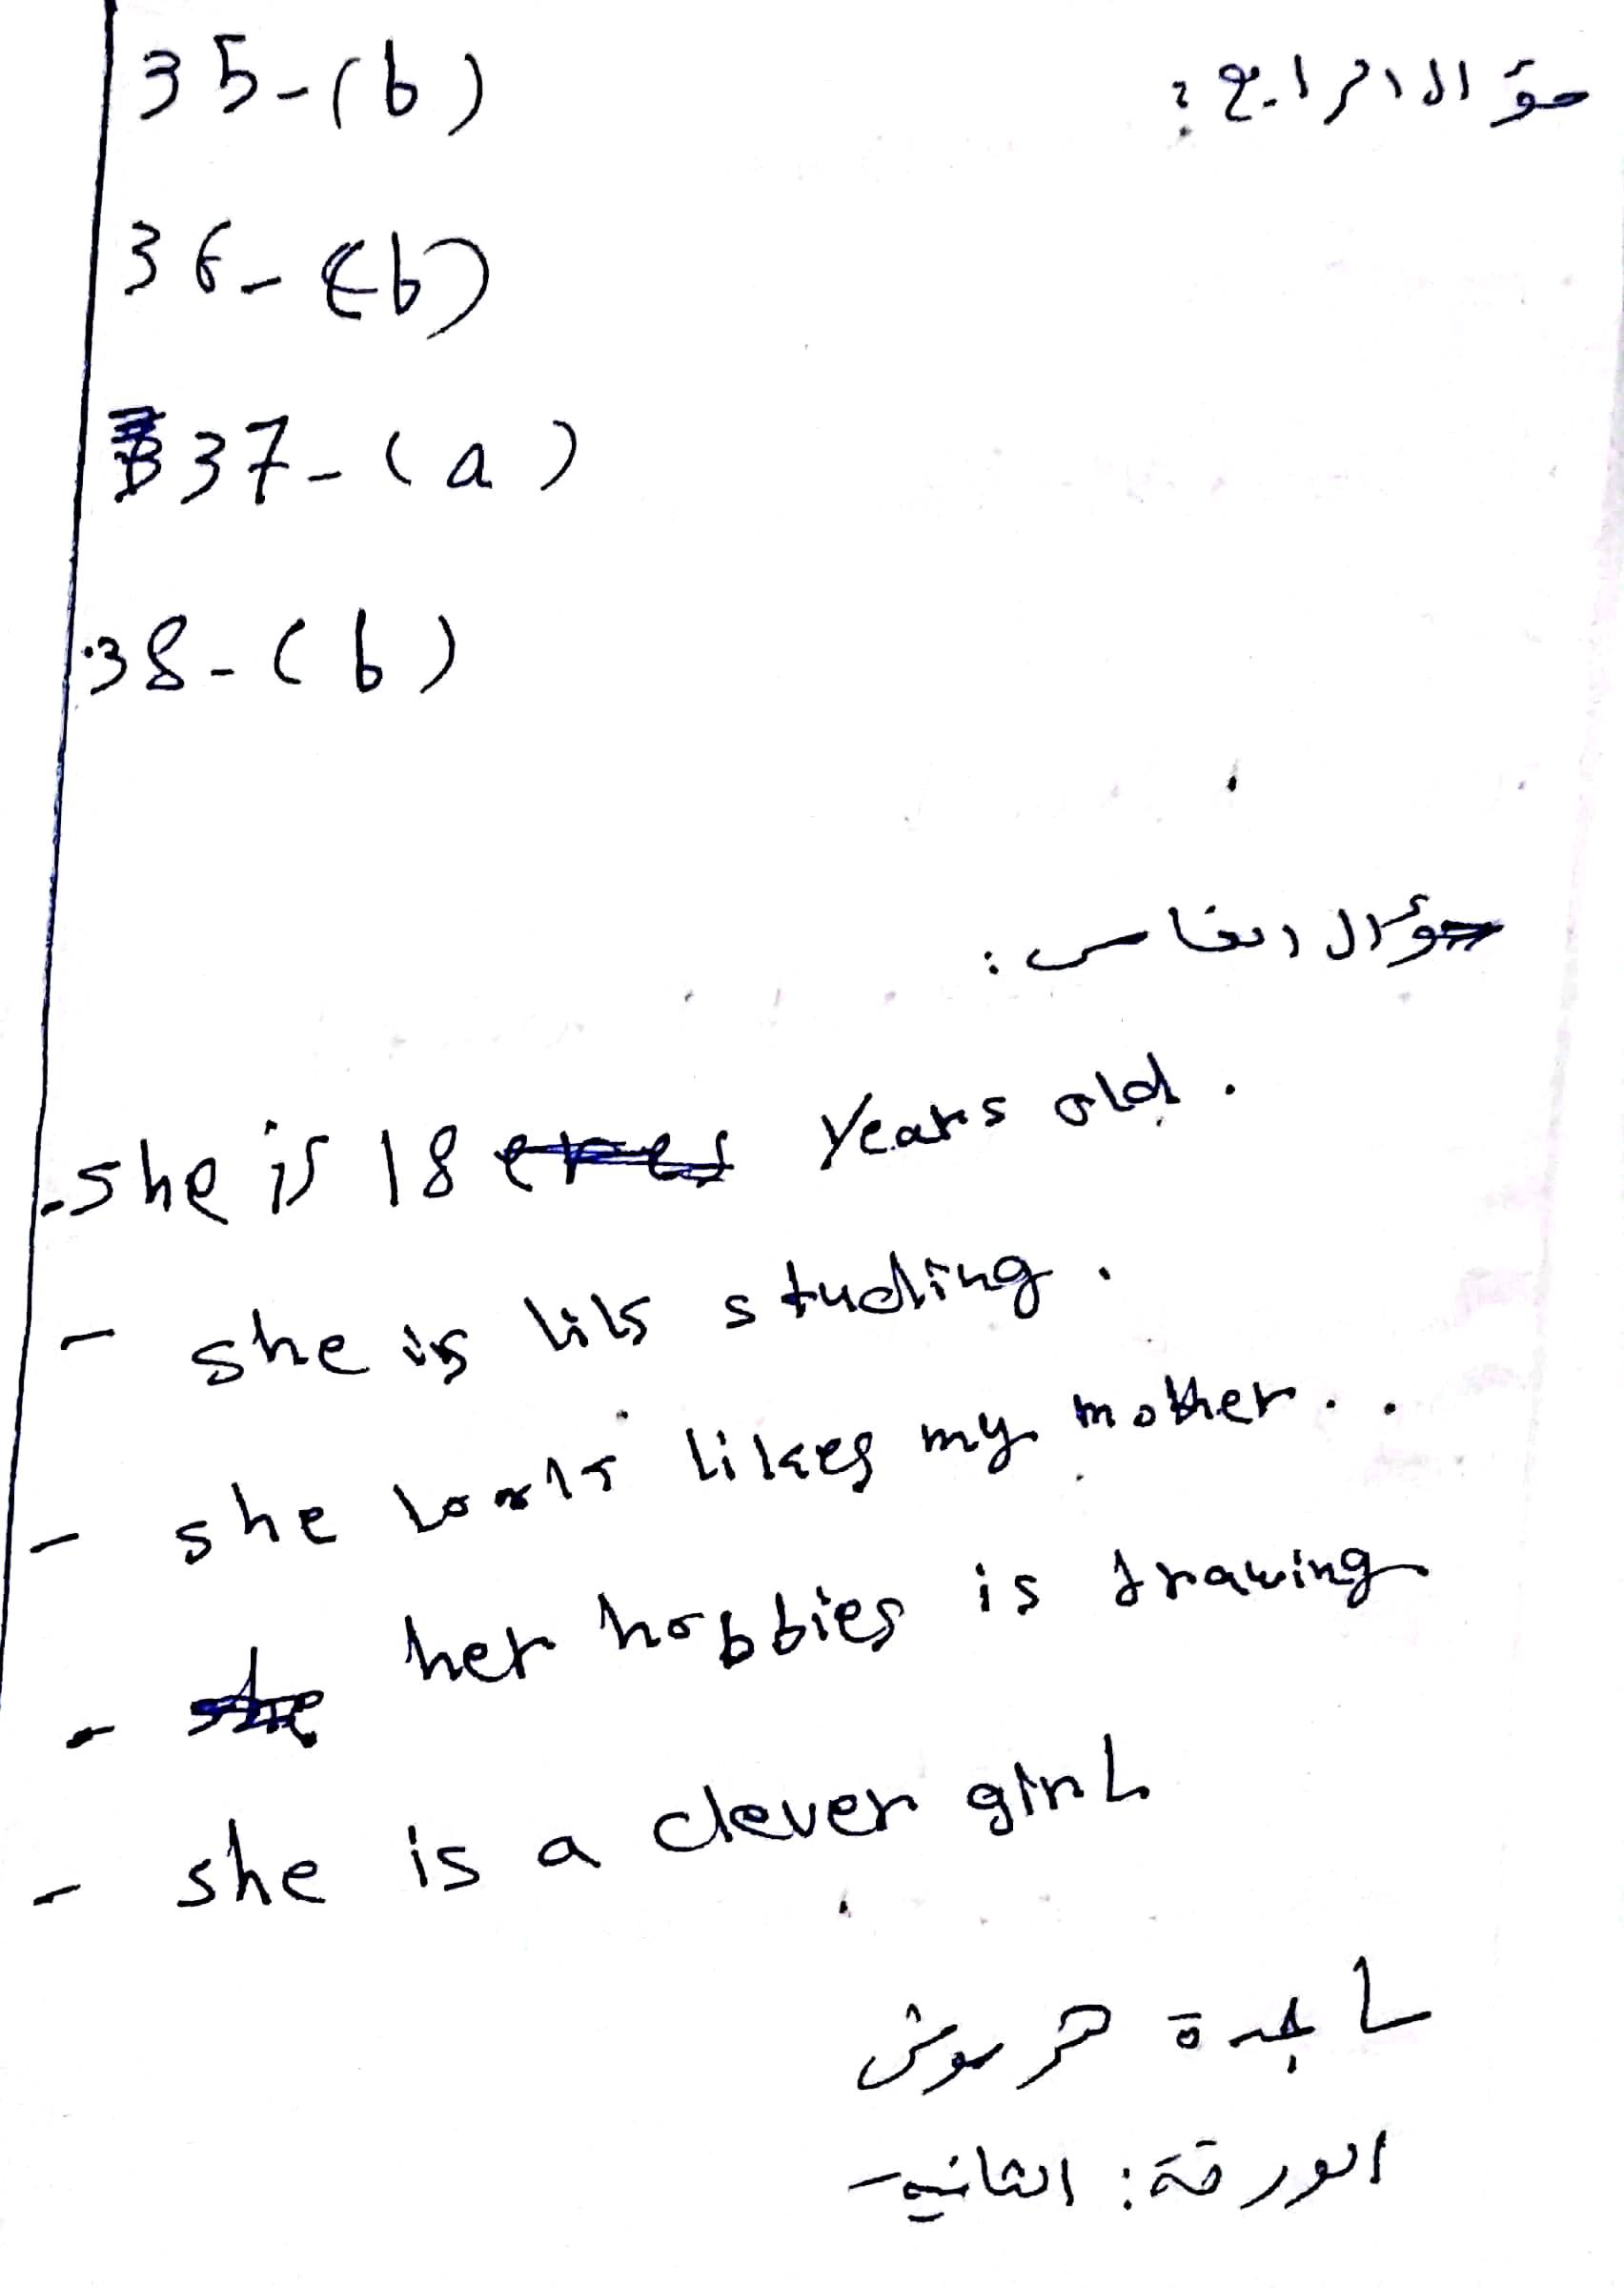 سؤال الرابع:
35-(b)
36-(b)
37-(a)
38-(b)
سؤال الخامس:
-she is 18 years old.
- she is liks studing.
- she looks likes my mother..
- her hobbies is drawing
- she is a clever girl
الورقة: الثانية